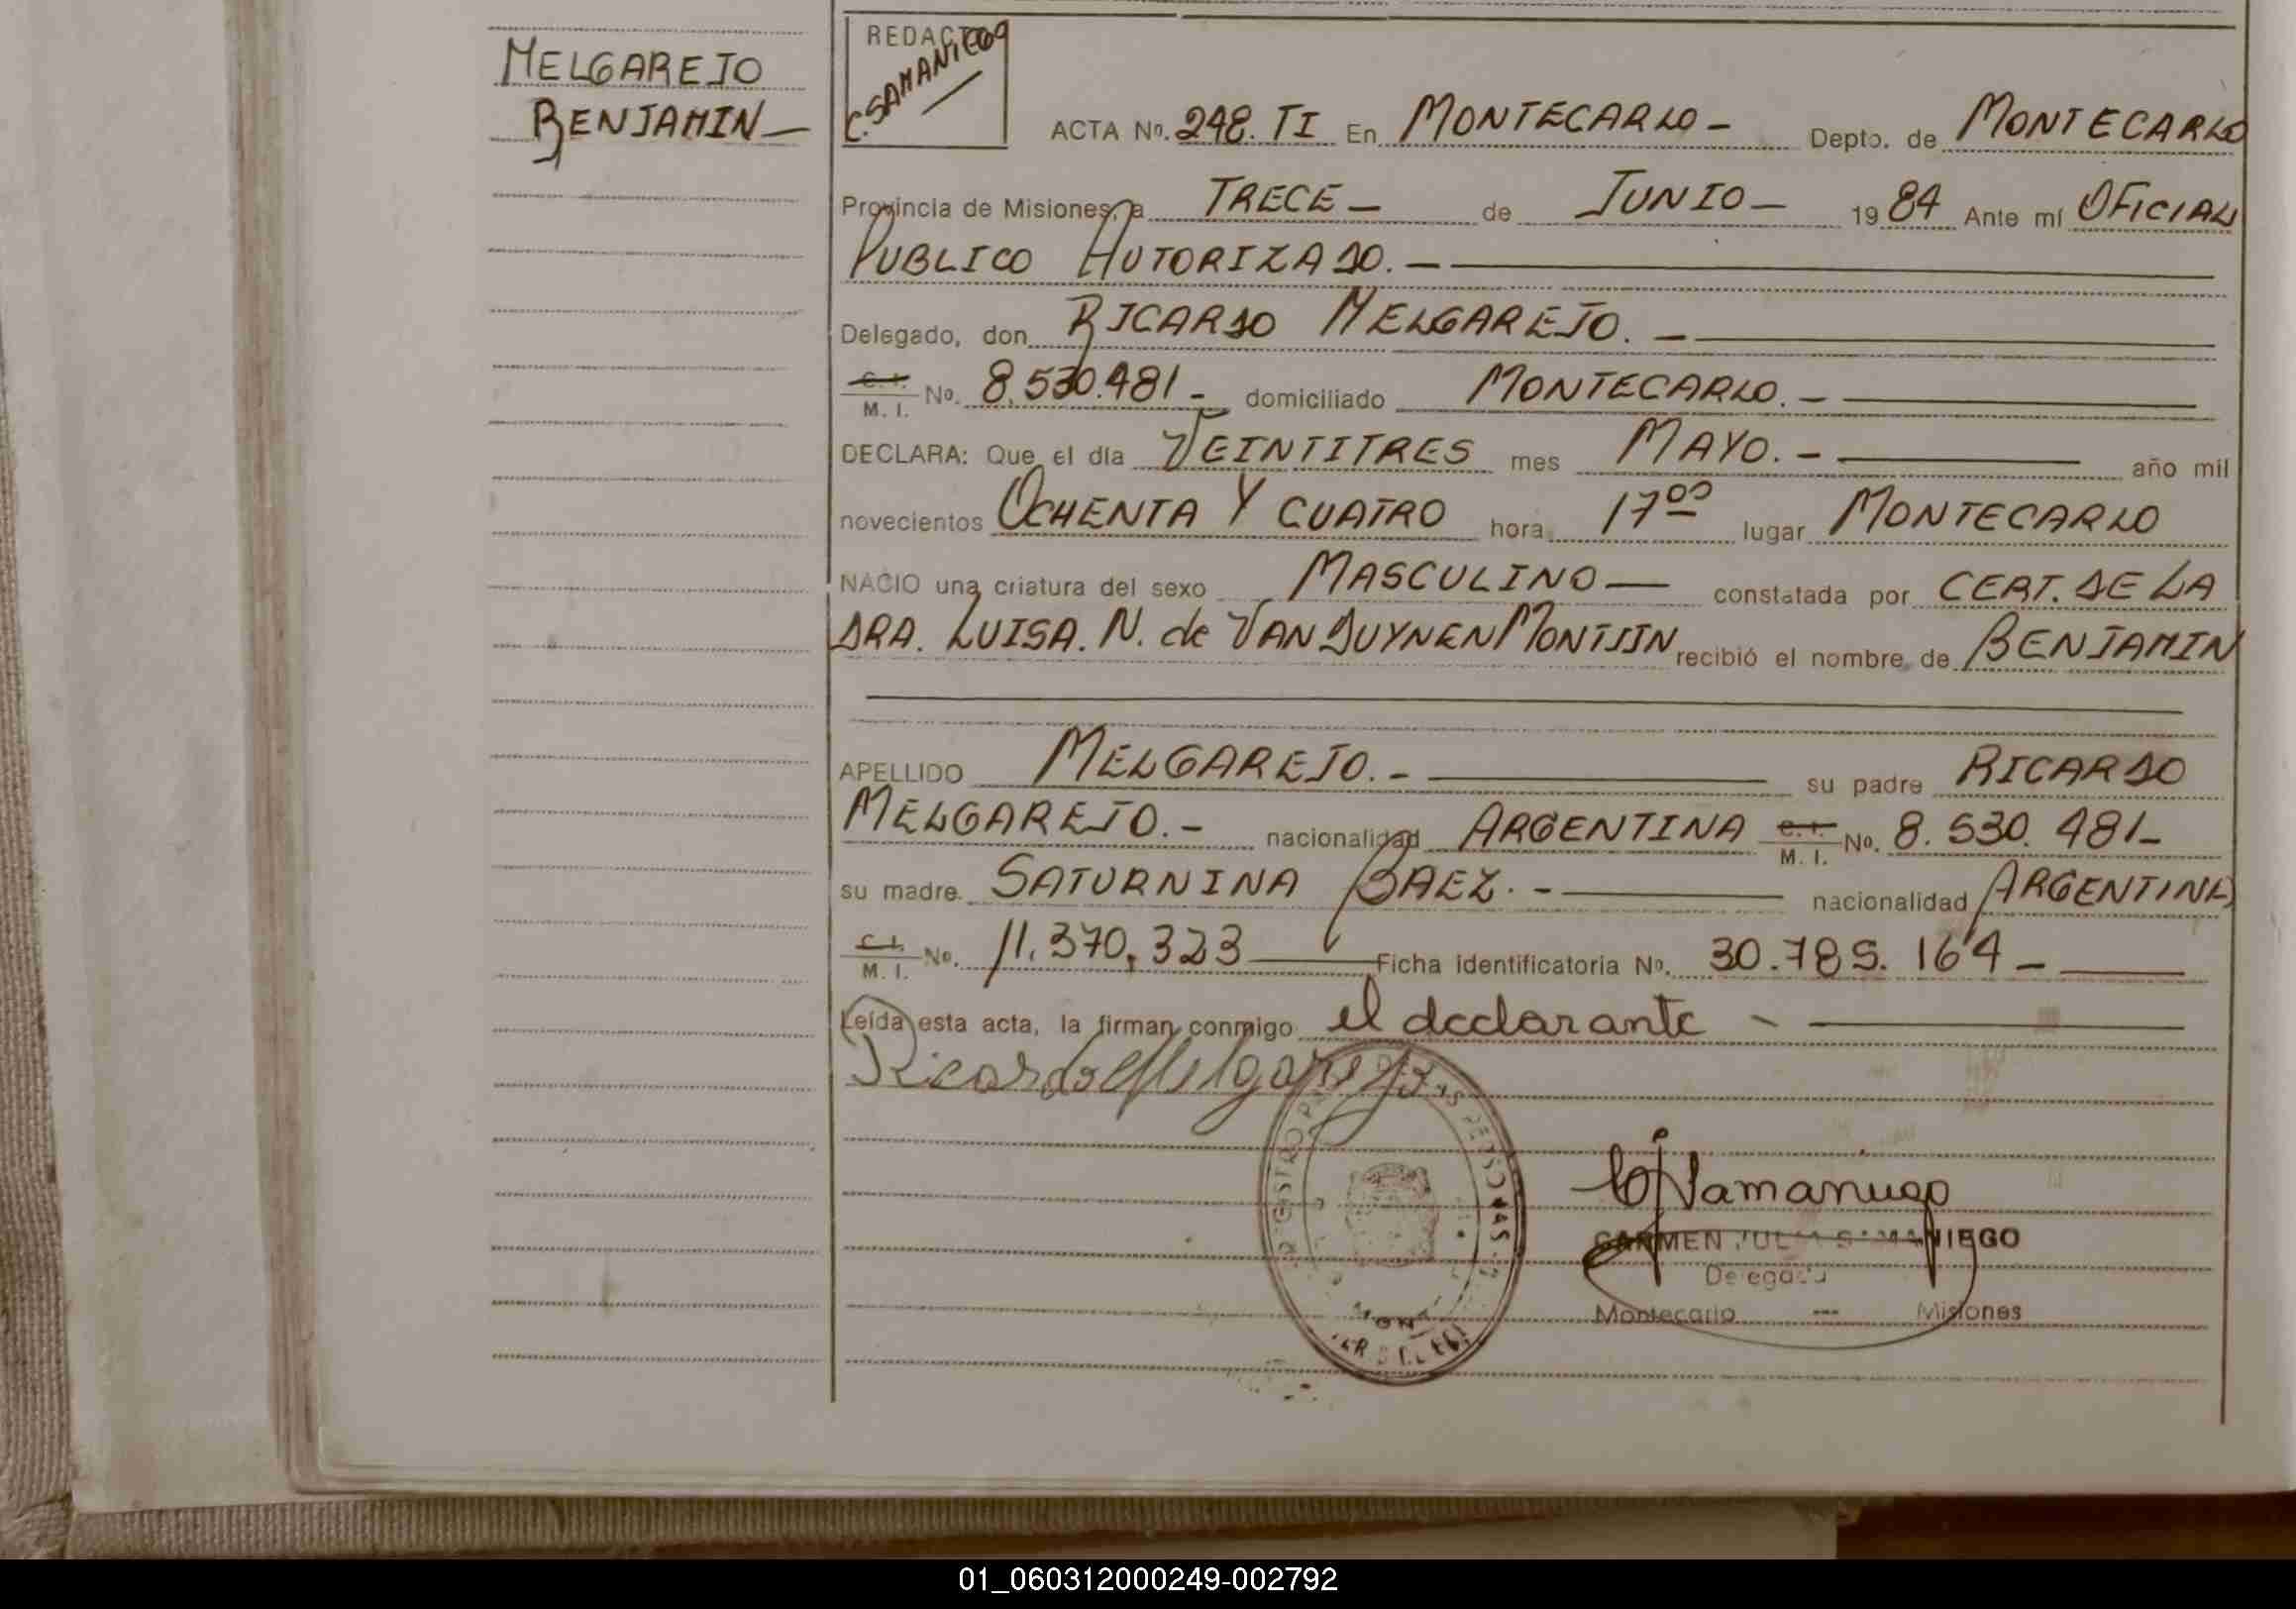 MELGAREJO
BENJAMIN —
REDACTO
C. SAMANIEGO
ACTA No. 248. TI En MONTECARLO - Depto. de MONTECARLO
Provincia de Misiones, a TRECE — de JUNIO — 1984 Ante mí OFICIAL
PUBLICO AUTORIZADO. —
Delegado, don RICARDO MELGAREJO. —
C. I. M. I. No. 8.530.481 - domiciliado MONTECARLO. —
DECLARA: Que el día VEINTITRES mes MAYO. — año mil
novecientos OCHENTA Y CUATRO hora 17ºº lugar MONTECARLO
NACIO una criatura del sexo MASCULINO — constatada por CERT. DE LA
DRA. LUISA. N. de VAN DUYNEN MONTIJN recibió el nombre de BENJAMIN
APELLIDO MELGAREJO. - su padre RICARDO
MELGAREJO. - nacionalidad ARGENTINA C. I. M. I. No. 8.530.481 -
su madre SATURNINA BAEZ. - nacionalidad ARGENTINA
C. I. M. I. No. 11.370.323 — Ficha identificatoria No. 30.785.164 -
Leída esta acta, la firman conmigo el declarante -
Ricardo Melgarejo
C J Samaniego
CARMEN JULIA SAMANIEGO
Delegada
Montecarlo --- Misiones
01_060312000249-002792